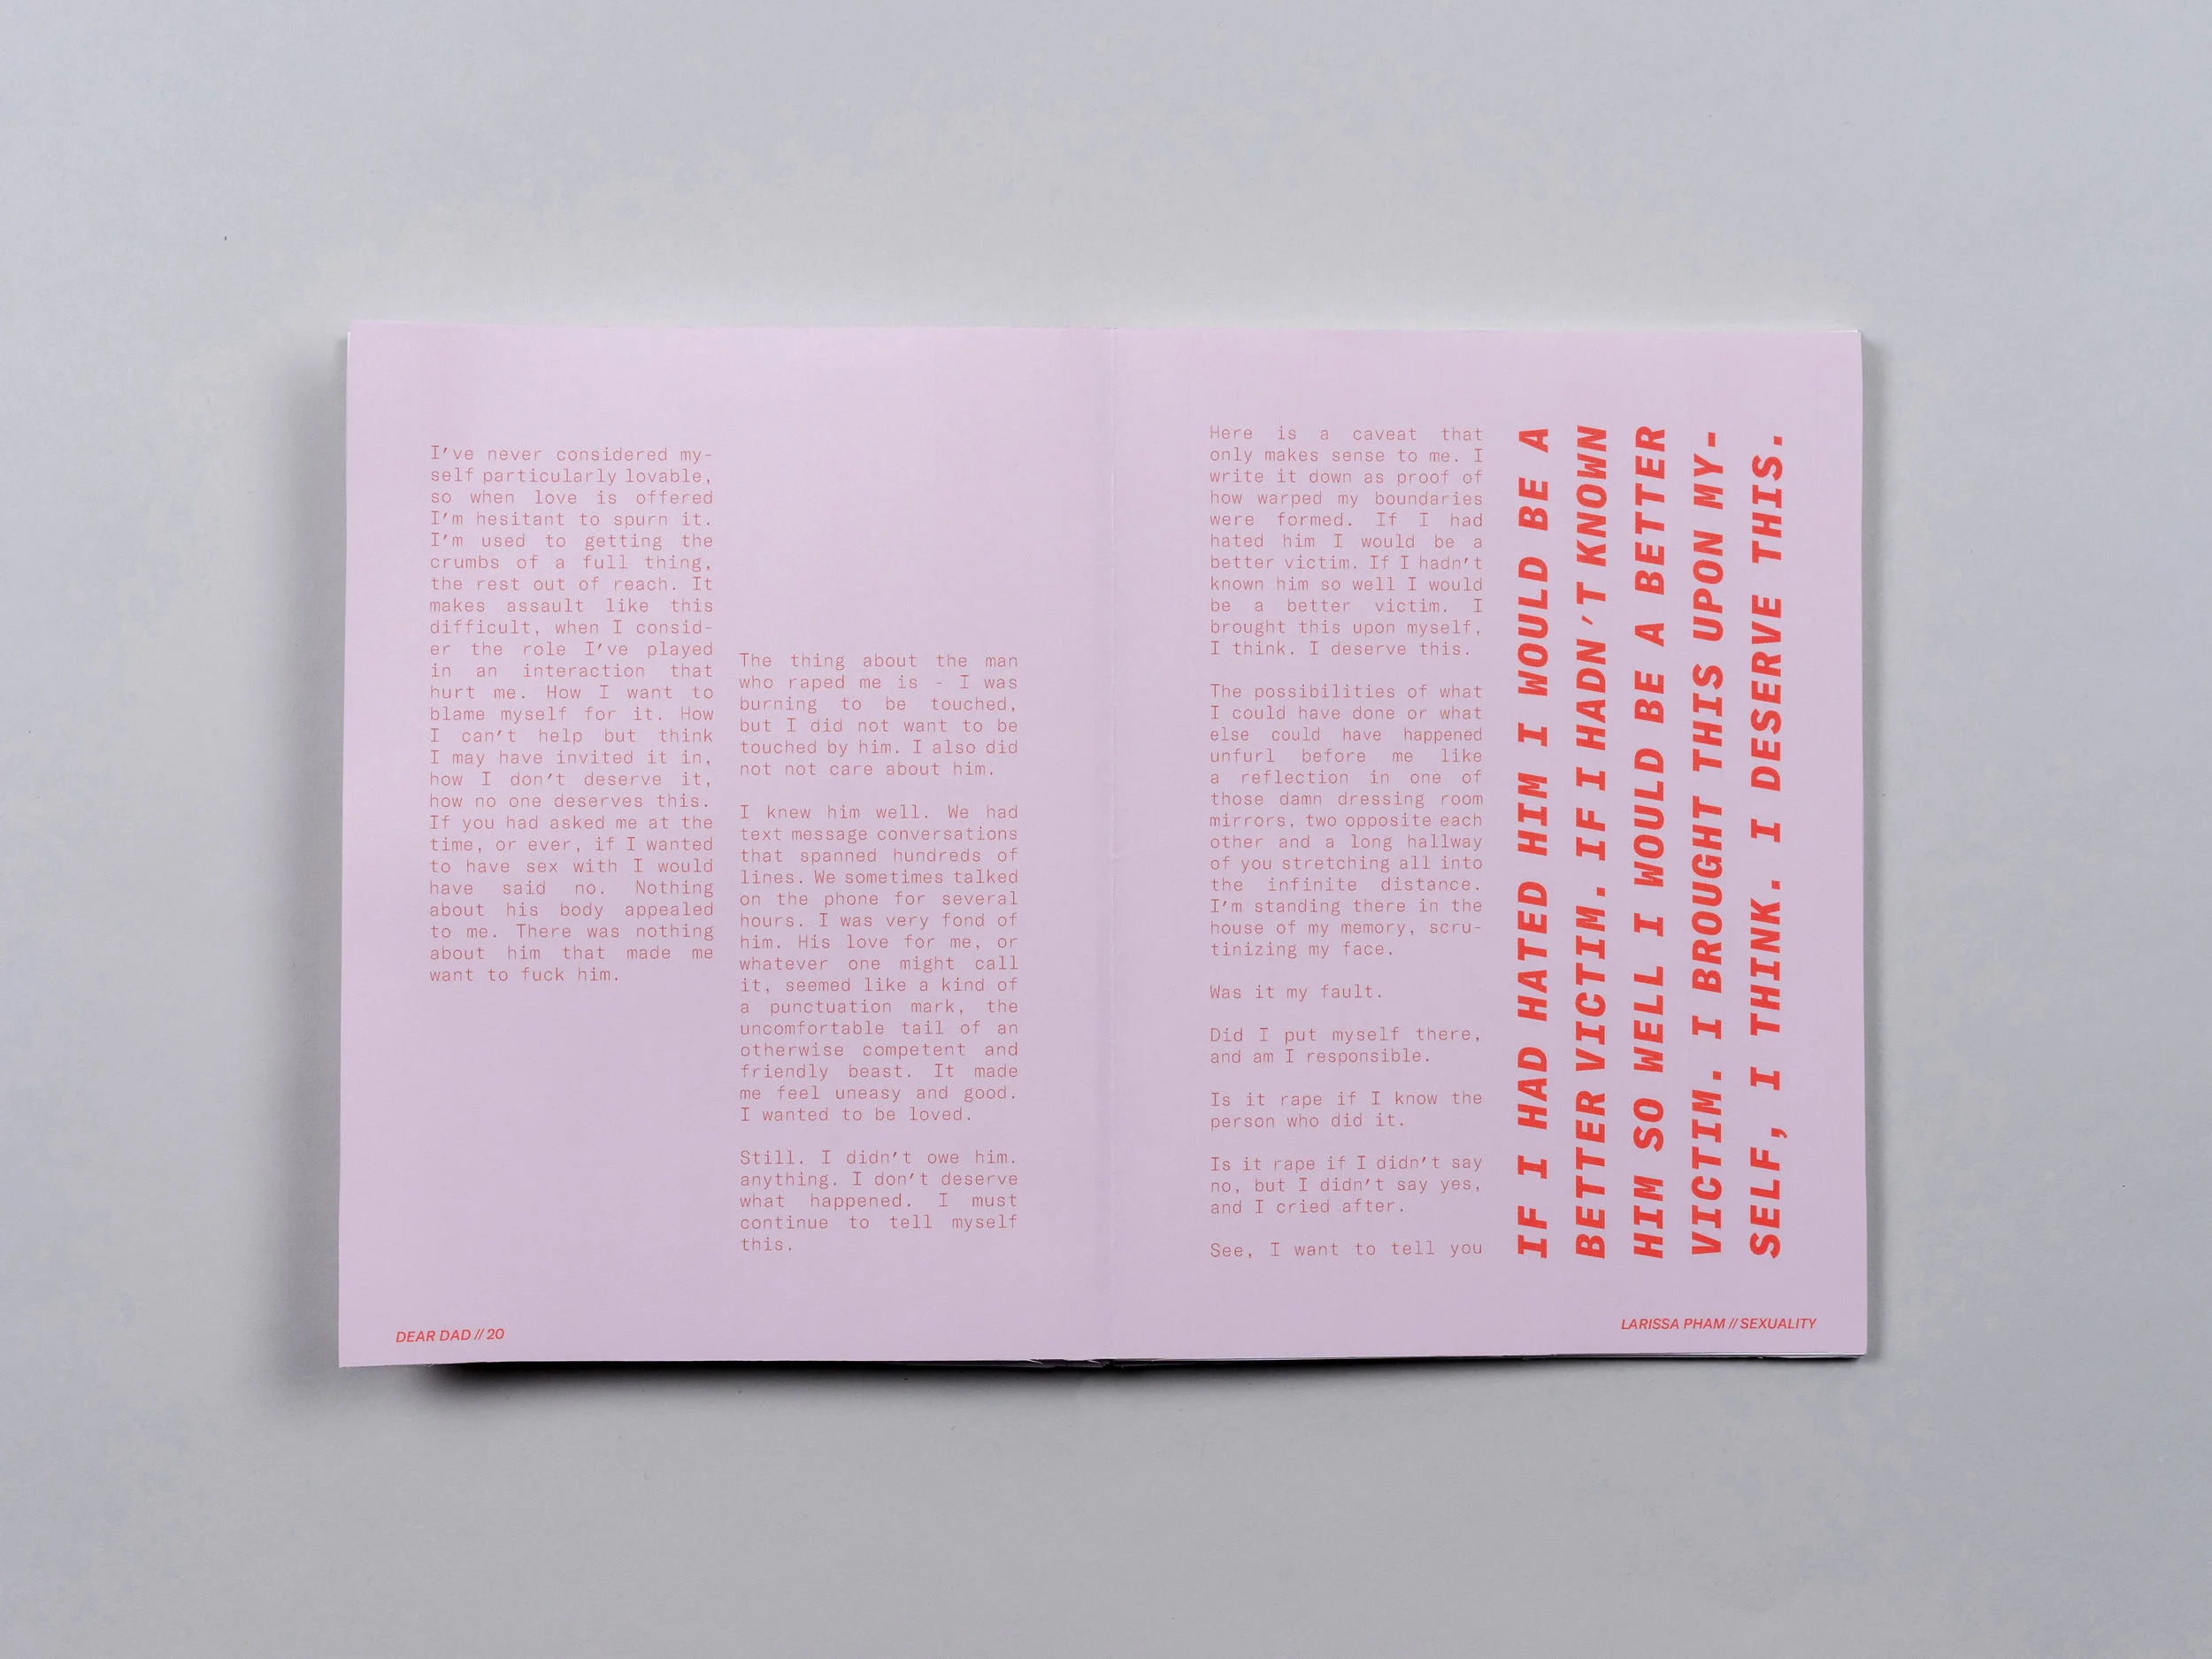 I've never considered my-
self particularly lovable,
so when love is offered
I'm hesitant to spurn it.
I'm used to getting the
crumbs of a full thing,
the rest out of reach. It
makes assault like this
difficult, when I consid-
er the role I've played
in an interaction that
hurt me. How I want to
blame myself for it. How
I can't help but think
I may have invited it in,
how I don't deserve it,
how no one deserves this.
If you had asked me at the
time, or ever, if I wanted
to have sex with I would
have said no. Nothing
about his body appealed
to me. There was nothing
about him that made me
want to fuck him.
The thing about the man
who raped me is - I was
burning to be touched,
but I did not want to be
touched by him. I also did
not not care about him.
I knew him well. We had
text message conversations
that spanned hundreds of
lines. We sometimes talked
on the phone for several
hours. I was very fond of
him. His love for me, or
whatever one might call
it, seemed like a kind of
a punctuation mark, the
uncomfortable tail of an
otherwise competent and
friendly beast. It made
me feel uneasy and good.
I wanted to be loved.
Still. I didn't owe him.
anything. I don't deserve
what happened. I must
continue to tell myself
this.
DEAR DAD // 20
Here is a caveat that
only makes sense to me. I
write it down as proof of
how warped my boundaries
were formed. If I had
hated him I would be a
better victim. If I hadn't
known him so well I would
be a better victim. I
brought this upon myself,
I think. I deserve this.
The possibilities of what
I could have done or what
else could have happened
unfurl before me like
a reflection in one of
those damn dressing room
mirrors, two opposite each
other and a long hallway
of you stretching all into
the infinite distance.
I'm standing there in the
house of my memory, scru-
tinizing my face.
Was it my fault.
Did I put myself there,
and am I responsible.
Is it rape if I know the
person who did it.
Is it rape if I didn't say
no, but I didn't say yes,
and I cried after.
See, I want to tell you
IF I HAD HATED HIM I WOULD BE A
BETTER VICTIM. IF I HADN'T KNOWN
HIM SO WELL I WOULD BE A BETTER
VICTIM. I BROUGHT THIS UPON MY-
SELF, I THINK. I DESERVE THIS.
LARISSA PHAM // SEXUALITY